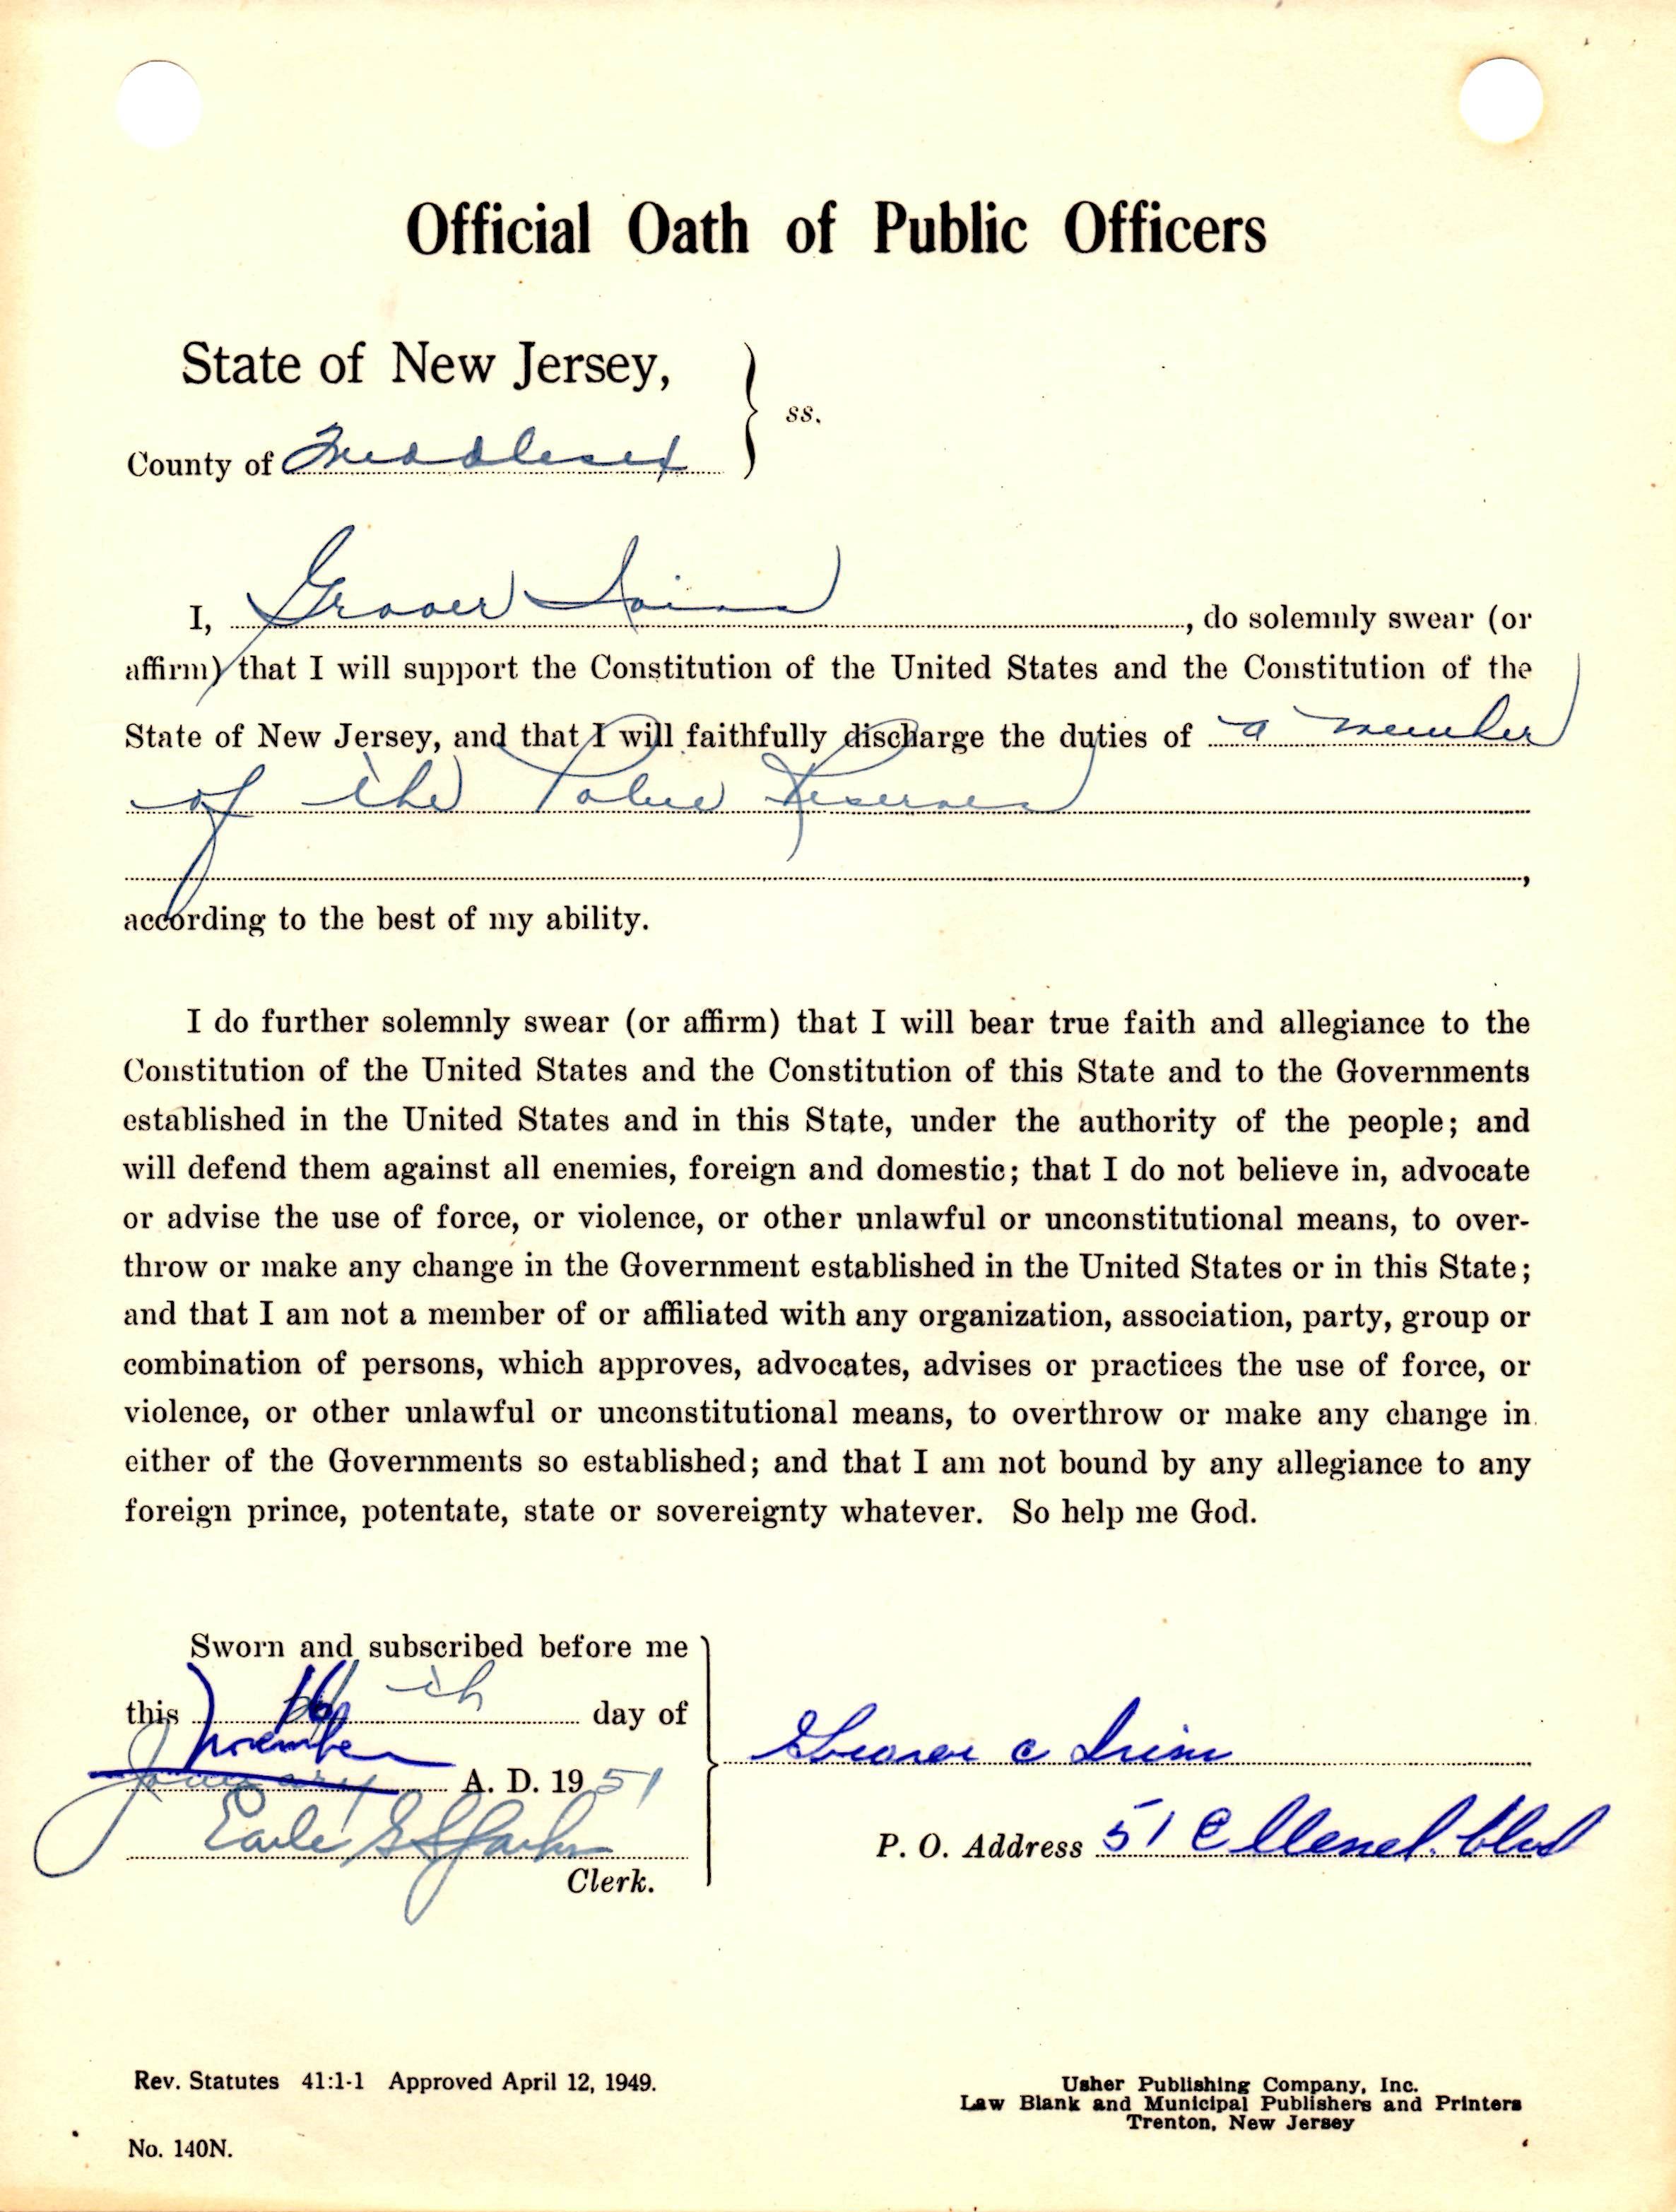 Official Oath of Public Officers
State of New Jersey,
ss.
County of Middlesex
I, Grover , do solemnly swear (or
affirm) that I will support the Constitution of the United States and the Constitution of the
State of New Jersey, and that I will faithfully discharge the duties of a member
of the Police Reserves
,
according to the best of my ability.
I do further solemnly swear (or affirm) that I will bear true faith and allegiance to the
Constitution of the United States and the Constitution of this State and to the Governments
established in the United States and in this State, under the authority of the people; and
will defend them against all enemies, foreign and domestic; that I do not believe in, advocate
or advise the use of force, or violence, or other unlawful or unconstitutional means, to over-
throw or make any change in the Government established in the United States or in this State;
and that I am not a member of or affiliated with any organization, association, party, group or
combination of persons, which approves, advocates, advises or practices the use of force, or
violence, or other unlawful or unconstitutional means, to overthrow or make any change in
either of the Governments so established; and that I am not bound by any allegiance to any
foreign prince, potentate, state or sovereignty whatever. So help me God.
Sworn and subscribed before me
this 16 th day of
November
January A. D. 1951
Earle
Clerk.
Grover C
P. O. Address 51 Blvd
Rev. Statutes 41:1-1 Approved April 12, 1949.
No. 140N.
Usher Publishing Company, Inc.
Law Blank and Municipal Publishers and Printers
Trenton, New Jersey